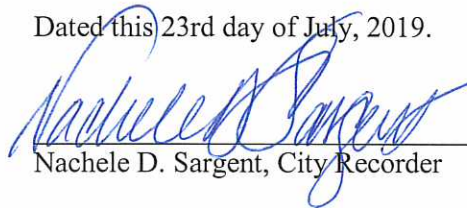 Dated this 23rd day of July, 2019.
Nachele D Sargent
Nachele D. Sargent, City Recorder